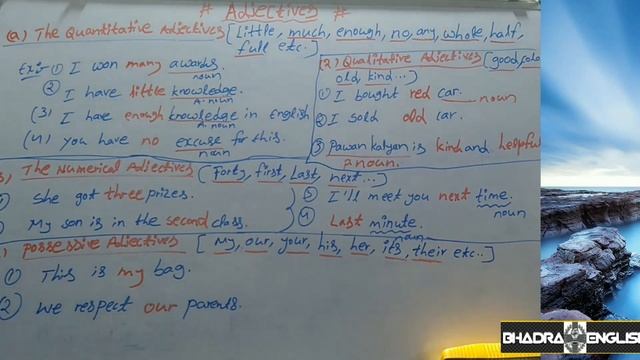 # Adjectives #
(a) The Quantitative Adjectives [Little, much, enough, no, any, whole, half,
full etc.]
Ex:- ① I won many awards.
noun
② I have little knowledge.
A. noun
(3) I have enough knowledge in English
A. noun
(4) you have no excuse for this.
noun
(2) Qualitative Adjectives (good,
old, kind...)
① I bought red car.
noun
② I sold old car.
③ Pawan kalyan is kind and helpful
noun.
) The Numerical Adjectives (Forty, first, Last, next...]
She got three prizes.
My son is in the second class.
③ I'll meet you next time.
noun
④ Last minute.
noun
) possessive Adjectives [My, our, your, his, her, it's, their etc..]
① This is my bag.
② we respect our parents.
BHADRA ENGLISH